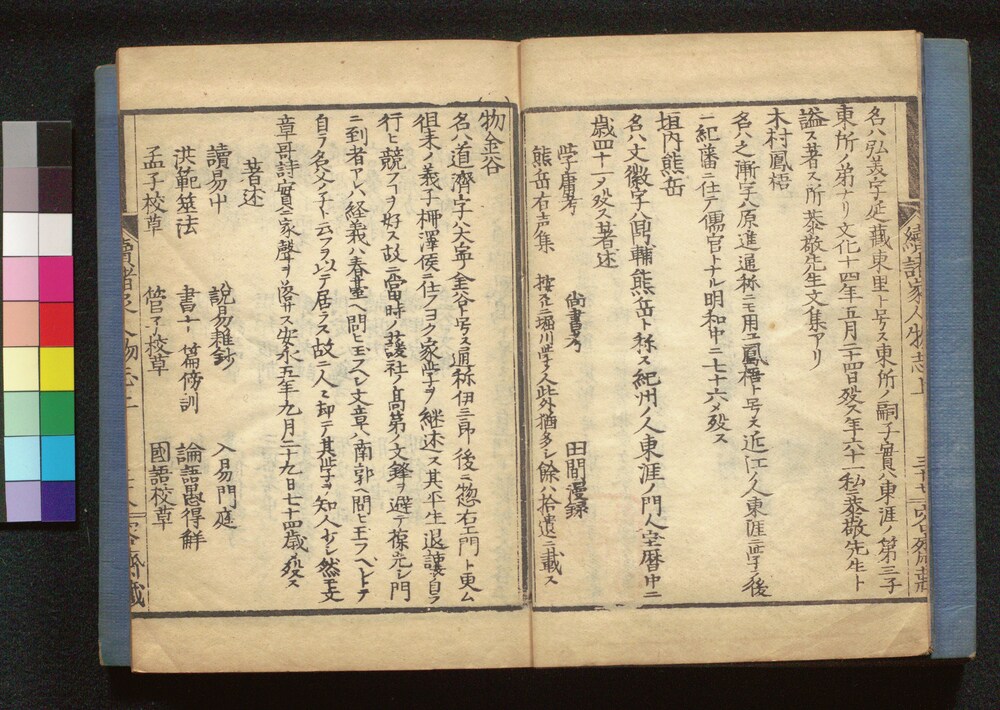 續諸家人物志上
名ハ弘美字延藏東里ト号ス東所ノ嗣子實ハ東涯ノ第三子
東所ノ弟ナリ文化十四年五月二十四日歿ス年六十一私ニ恭敬先生ト
謚ス著ス所恭敬先生文集アリ
木村鳳梧
名ハ之漸字ハ原進通称ニモ用ユ鳳梧ト号ス近江ノ人東涯ニ學ヒ後
紀藩ニ仕テ儒官トナル明和中ニ七十六メ歿ス
垣内熊岳
名ハ文徽字ハ輔熊岳ト称ス紀州ノ人東涯ノ門人宝暦中ニ
歳四十一メ歿ス著述
學庸考 尚書考 田間漫録
熊岳右声集 按スルニ堀川學ノ人此外猶多シ餘ハ拾遺ニ載ス
物金谷
名ハ道濟字ハ大寧金谷ト号ス通称伊三郎後ニ惣右エ門ト更ム
徂来ノ義子柳澤侯ニ仕フヨク家學ヲ継述ス其平生退讓自ラ
行ヒ競フヿヲ好ス故ニ當時ノ社ノ高第ノ文鋒ヲ避テ葆光シ門
ニ到者アレハ経義ハ春臺ヘ問ヒ玉フヘシ文章ハ南郭ヘ問ヒ玉フヘシトテ
自ラ名父ノ子ト云フヲ以テ居ラス故ニ人ニ却テ其學ヲ知人少シ然モ文
章哥詩實ニ家聲ヲ落サス安永五年九月二十九日七十四歳メ歿ス
著述
讀易 說易雜鈔 入易門庭
洪範筮法 書十篇傍訓 論語愚得解
孟子校草 管子校草 國語校草
續諸家人物志上